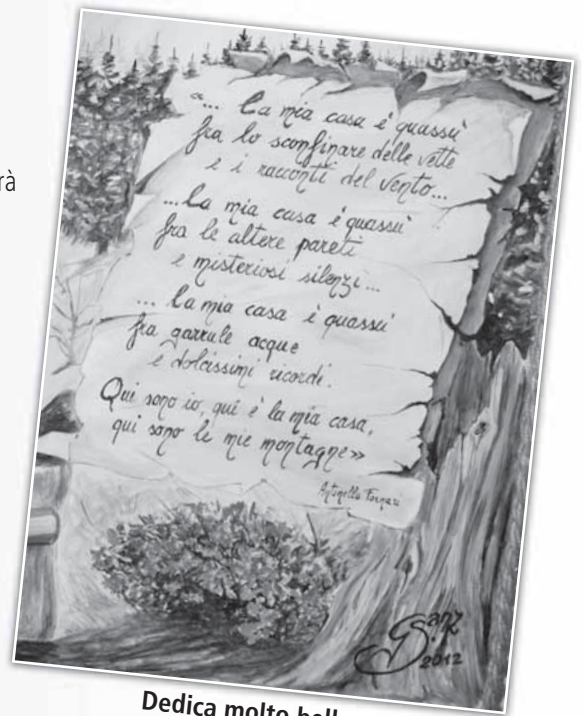 rà
"... La mia casa è quassù
fra lo sconfinare delle vette
e i racconti del vento...
...La mia casa è quassù
fra le altere pareti
e misteriosi silenzi...
... La mia casa è quassù
fra garrule acque
e dolcissimi ricordi.
Qui sono io, qui è la mia casa,
qui sono le mie montagne»
Antonella Fornari
2012
Dedica molto